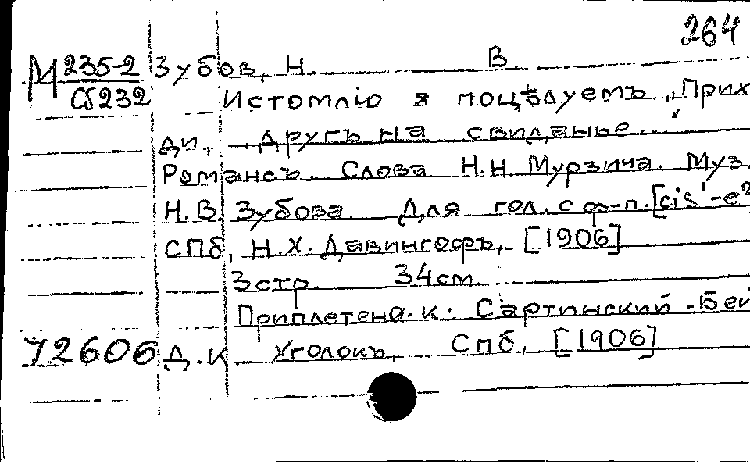 264
М 235-2 Зубов, Н. В
Сб232 Истомлю я поцѣлуемъ, "Прих
ди, другъ на свиданье."
Романсъ. Слова Н.Н. Мурзича. Муз.
Н.В. Зубова. Для гол. с ф-п. [cis'-e²
СПб, Н.Х. Давингофъ, [1906]
3стр. 34см
Приплетена к: Сартинский-Бей
72606 Д.К Уголокъ, Спб, [1906]